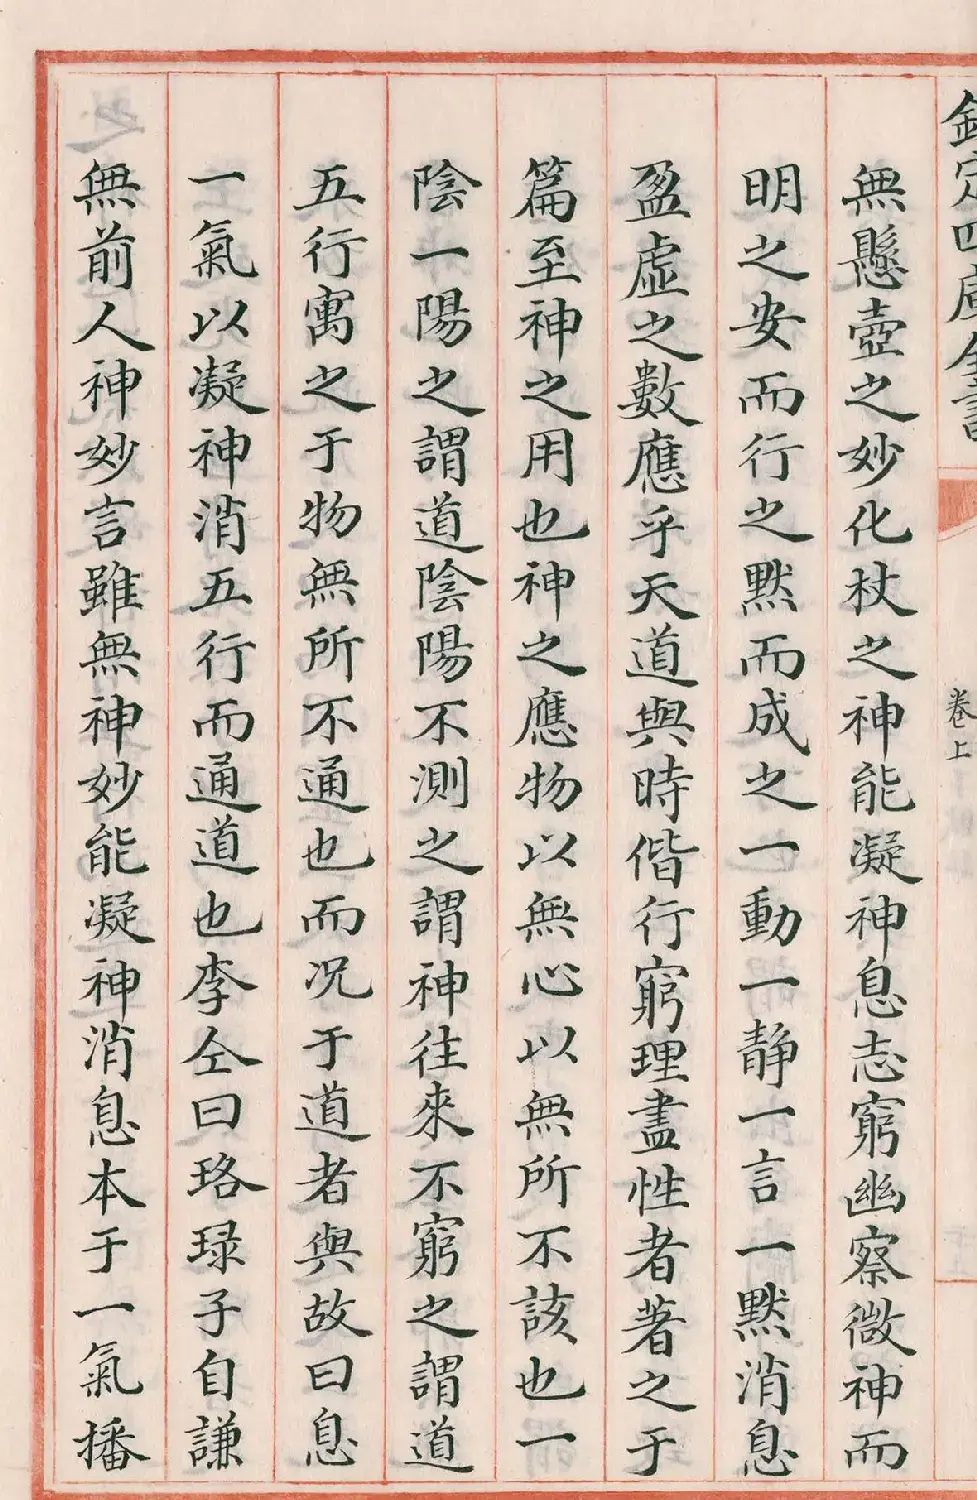 欽定四庫全書
卷上
無懸壺之妙化杖之神能凝神息志窮幽察微神而
明之安而行之黙而成之一動一静一言一黙消息
盈虛之數應乎天道與時偕行窮理盡性者著之于
篇至神之用也神之應物以無心以無所不該也一
陰一陽之謂道陰陽不測之謂神往來不窮之謂道
五行寓之于物無所不通也而况于道者與故曰息
一氣以凝神消五行而通道也李仝曰珞琭子自謙
無前人神妙言雖無神妙能凝神消息本于一氣播